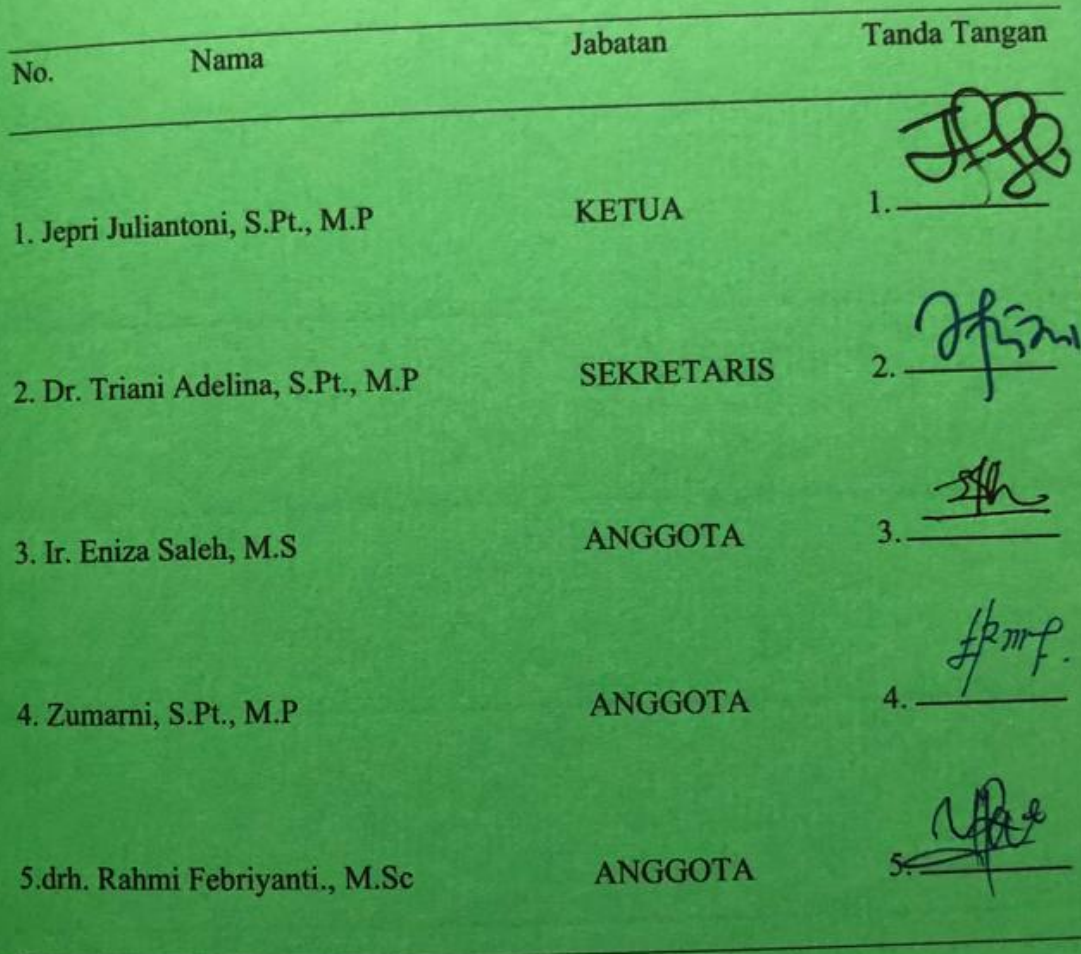 No. Nama Jabatan Tanda Tangan
1. Jepri Juliantoni, S.Pt., M.P KETUA 1.
2. Dr. Triani Adelina, S.Pt., M.P SEKRETARIS 2.
3. Ir. Eniza Saleh, M.S ANGGOTA 3.
4. Zumarni, S.Pt., M.P ANGGOTA 4.
5.drh. Rahmi Febriyanti., M.Sc ANGGOTA 5.